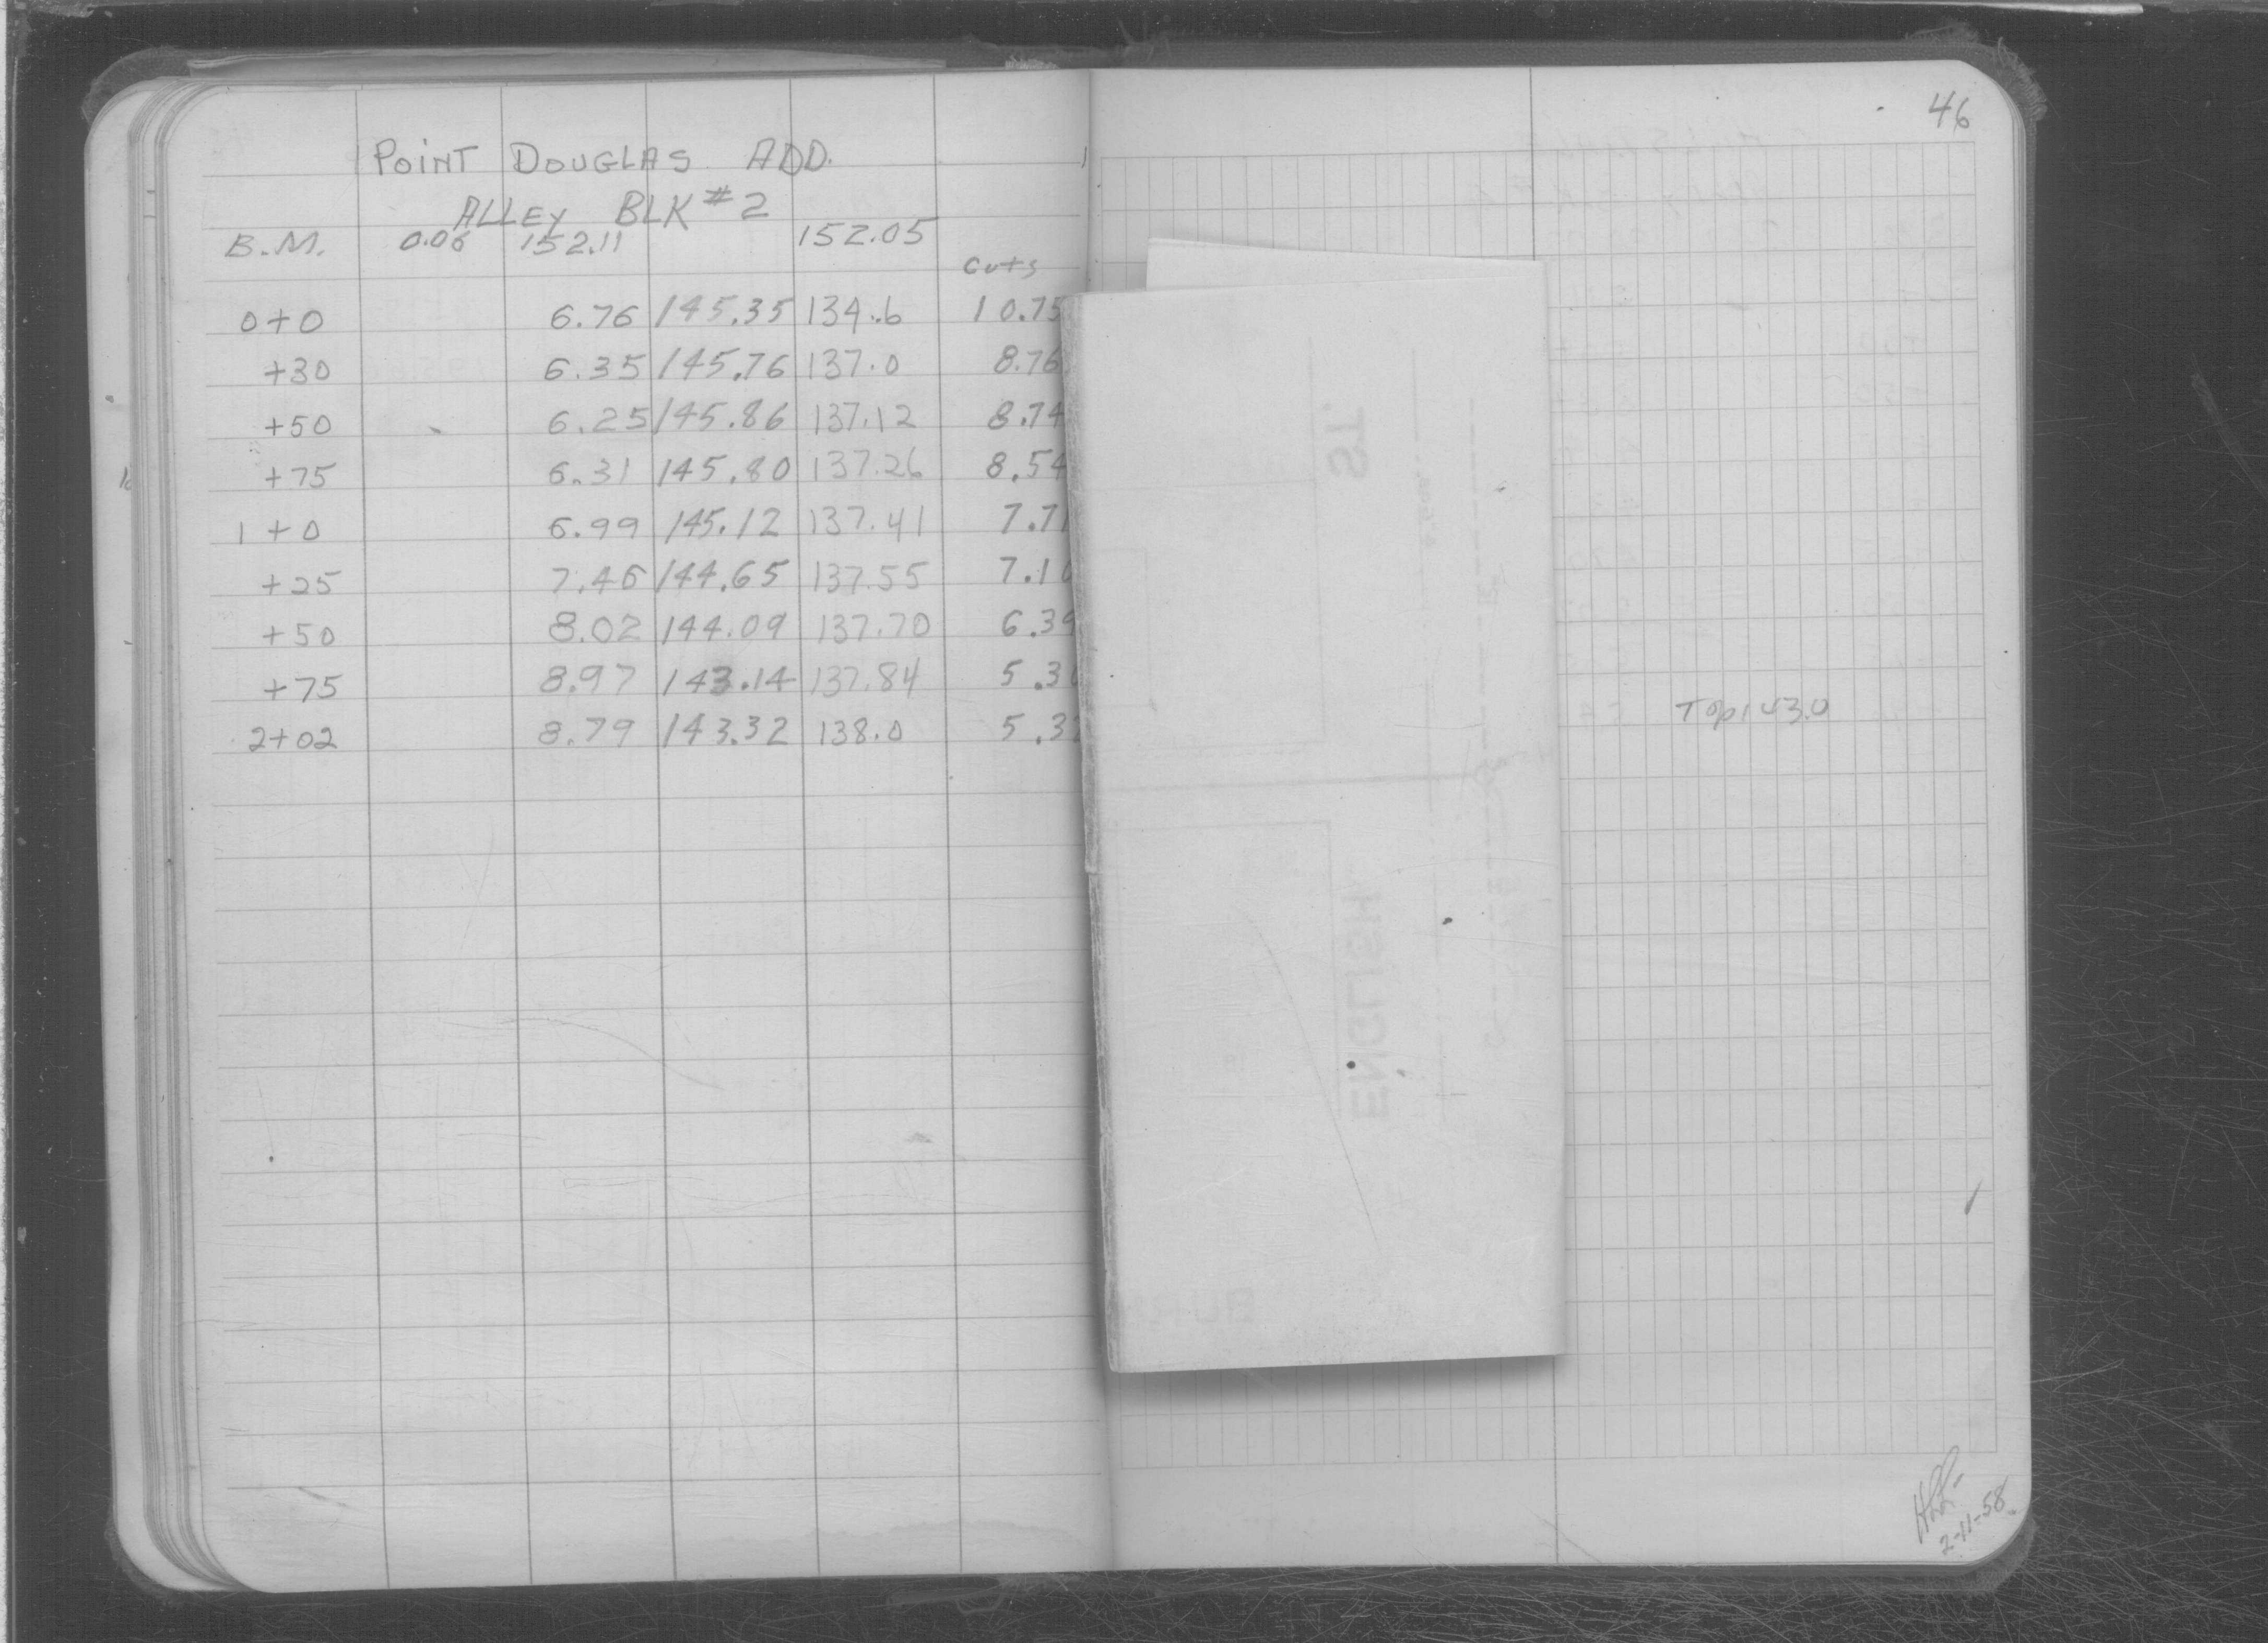 46
POINT DOUGLAS ADD.
ALLEY BLK #2
B.M. 0.06 152.11 152.05
Cuts
0+0 6.76 145.35 134.6 10.75
+30 6.35 145.76 137.0 8.76
+50 6.25 145.86 137.12 8.74
+75 6.31 145.80 137.26 8.54
1+0 6.99 145.12 137.41 7.71
+25 7.46 144.65 137.55 7.10
+50 8.02 144.09 137.70 6.39
+75 8.97 143.14 137.84 5.30
2+02 8.79 143.32 138.0 5.32
Top 143.0
ST.
ENGLISH
BUR
2-11-58